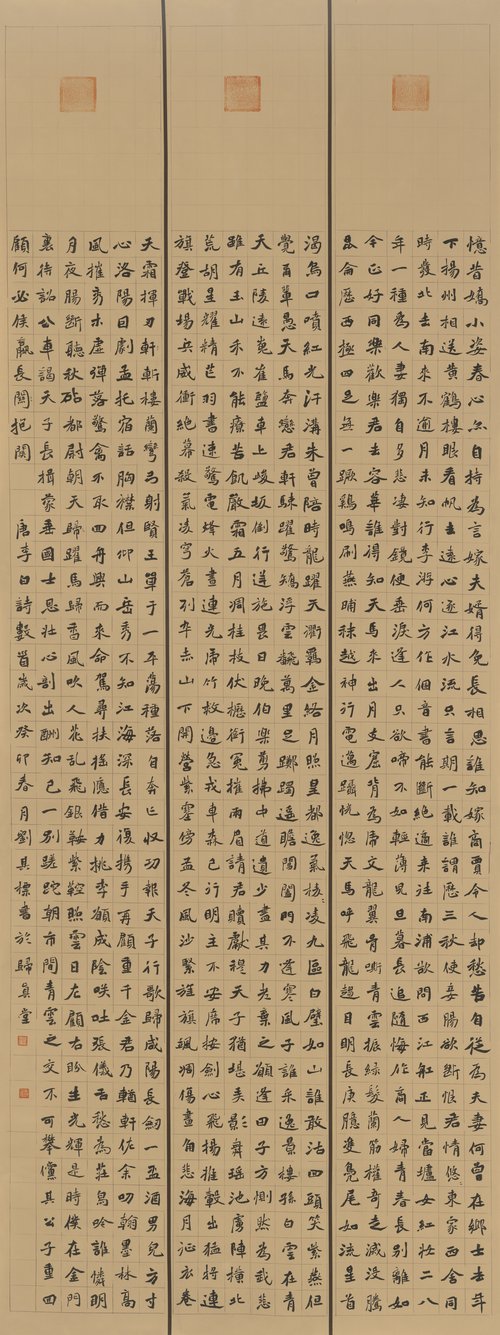 憶昔嬌小姿春心亦自持為言嫁夫婿得免長相思誰知嫁商賈令人却愁苦自從為夫妻何曾在鄉土去年
下揚州相送黃鶴樓眼看帆去遠心逐江水流只言期一載誰謂歷三秋使妾腸欲斷恨君情悠悠東家西舍同
時發北去南來不逾月未知行李游何方作個音書能斷絕適來往南浦欲問西江船正見當壚女紅妝二八
年一種為人妻獨自多悲凄對鏡便垂淚逢人只欲啼不如輕薄兒旦暮長追隨悔作商人婦青春長別離如
今正好同樂歡樂君去容華誰得知天馬來出月支窟背為虎文龍翼骨嘶青雲振綠髮蘭筋權奇走滅沒騰
昆侖歷西極四足無一蹶雞鳴刷燕晡秣越神行電邁躡恍惚天馬呼飛龍趨目明長庚臆雙鳧尾如流星首
渴烏口噴紅光汗溝朱曾陪時龍躍天衢羈金絡月照皇都逸氣棱棱凌九區白璧如山誰敢沽回頭笑紫燕但
覺爾輩愚天馬奔戀君軒駷躍驚矯浮雲翻萬里足躑躅遙瞻閶闔門不逢寒風子誰采逸景樓孫白雲在青
天丘陵遠嵬崔鹽車上峻坂倒行逆施畏日晚伯樂剪拂中道遺少盡其力老棄之願逢田子方惻然為我悲
雖有玉山禾不能療苦飢嚴霜五月凋桂枝伏櫪銜冤摧兩眉請君贖獻穆天子猶堪弄影舞瑤池虜陣橫北
荒胡星耀精芒羽書速驚電烽火晝連光虎竹救邊急戎車森已行明主不安席按劍心飛揚推轂出猛將連
旗登戰場兵威衝絕幕殺氣凌穹蒼列卒赤山下開營紫塞傍孟冬風沙緊旌旗颯凋傷畫角悲海月征衣卷
天霜揮刃斬斬樓蘭彎弓射賢王單于一平蕩種落自奔亡收功報天子行歌歸咸陽長劍一杯酒男兒方寸
心洛陽因劇孟托宿話胸襟但仰山岳秀不知江海深長安復攜手再顧重千金君乃輶軒佐余叨翰墨林高
風摧秀木虛彈落驚禽不取回舟興而來命駕尋扶搖應借力桃李願成陰笑吐張儀舌愁為莊舄吟誰憐明
月夜腸斷聽秋砧都尉朝天歸躍馬歸香風吹人花亂飛銀鞍紫鞚照雲日左顧右盼生光輝是時僕在金門
裏待詔公車謁天子長揖蒙垂國士恩壯心剖出酬知己一別蹉跎朝市間青雲之交不可攀儻其公子重回
顧何必侯嬴長關抱關 唐李白詩數首歲次癸卯春月劉其標書於歸真堂